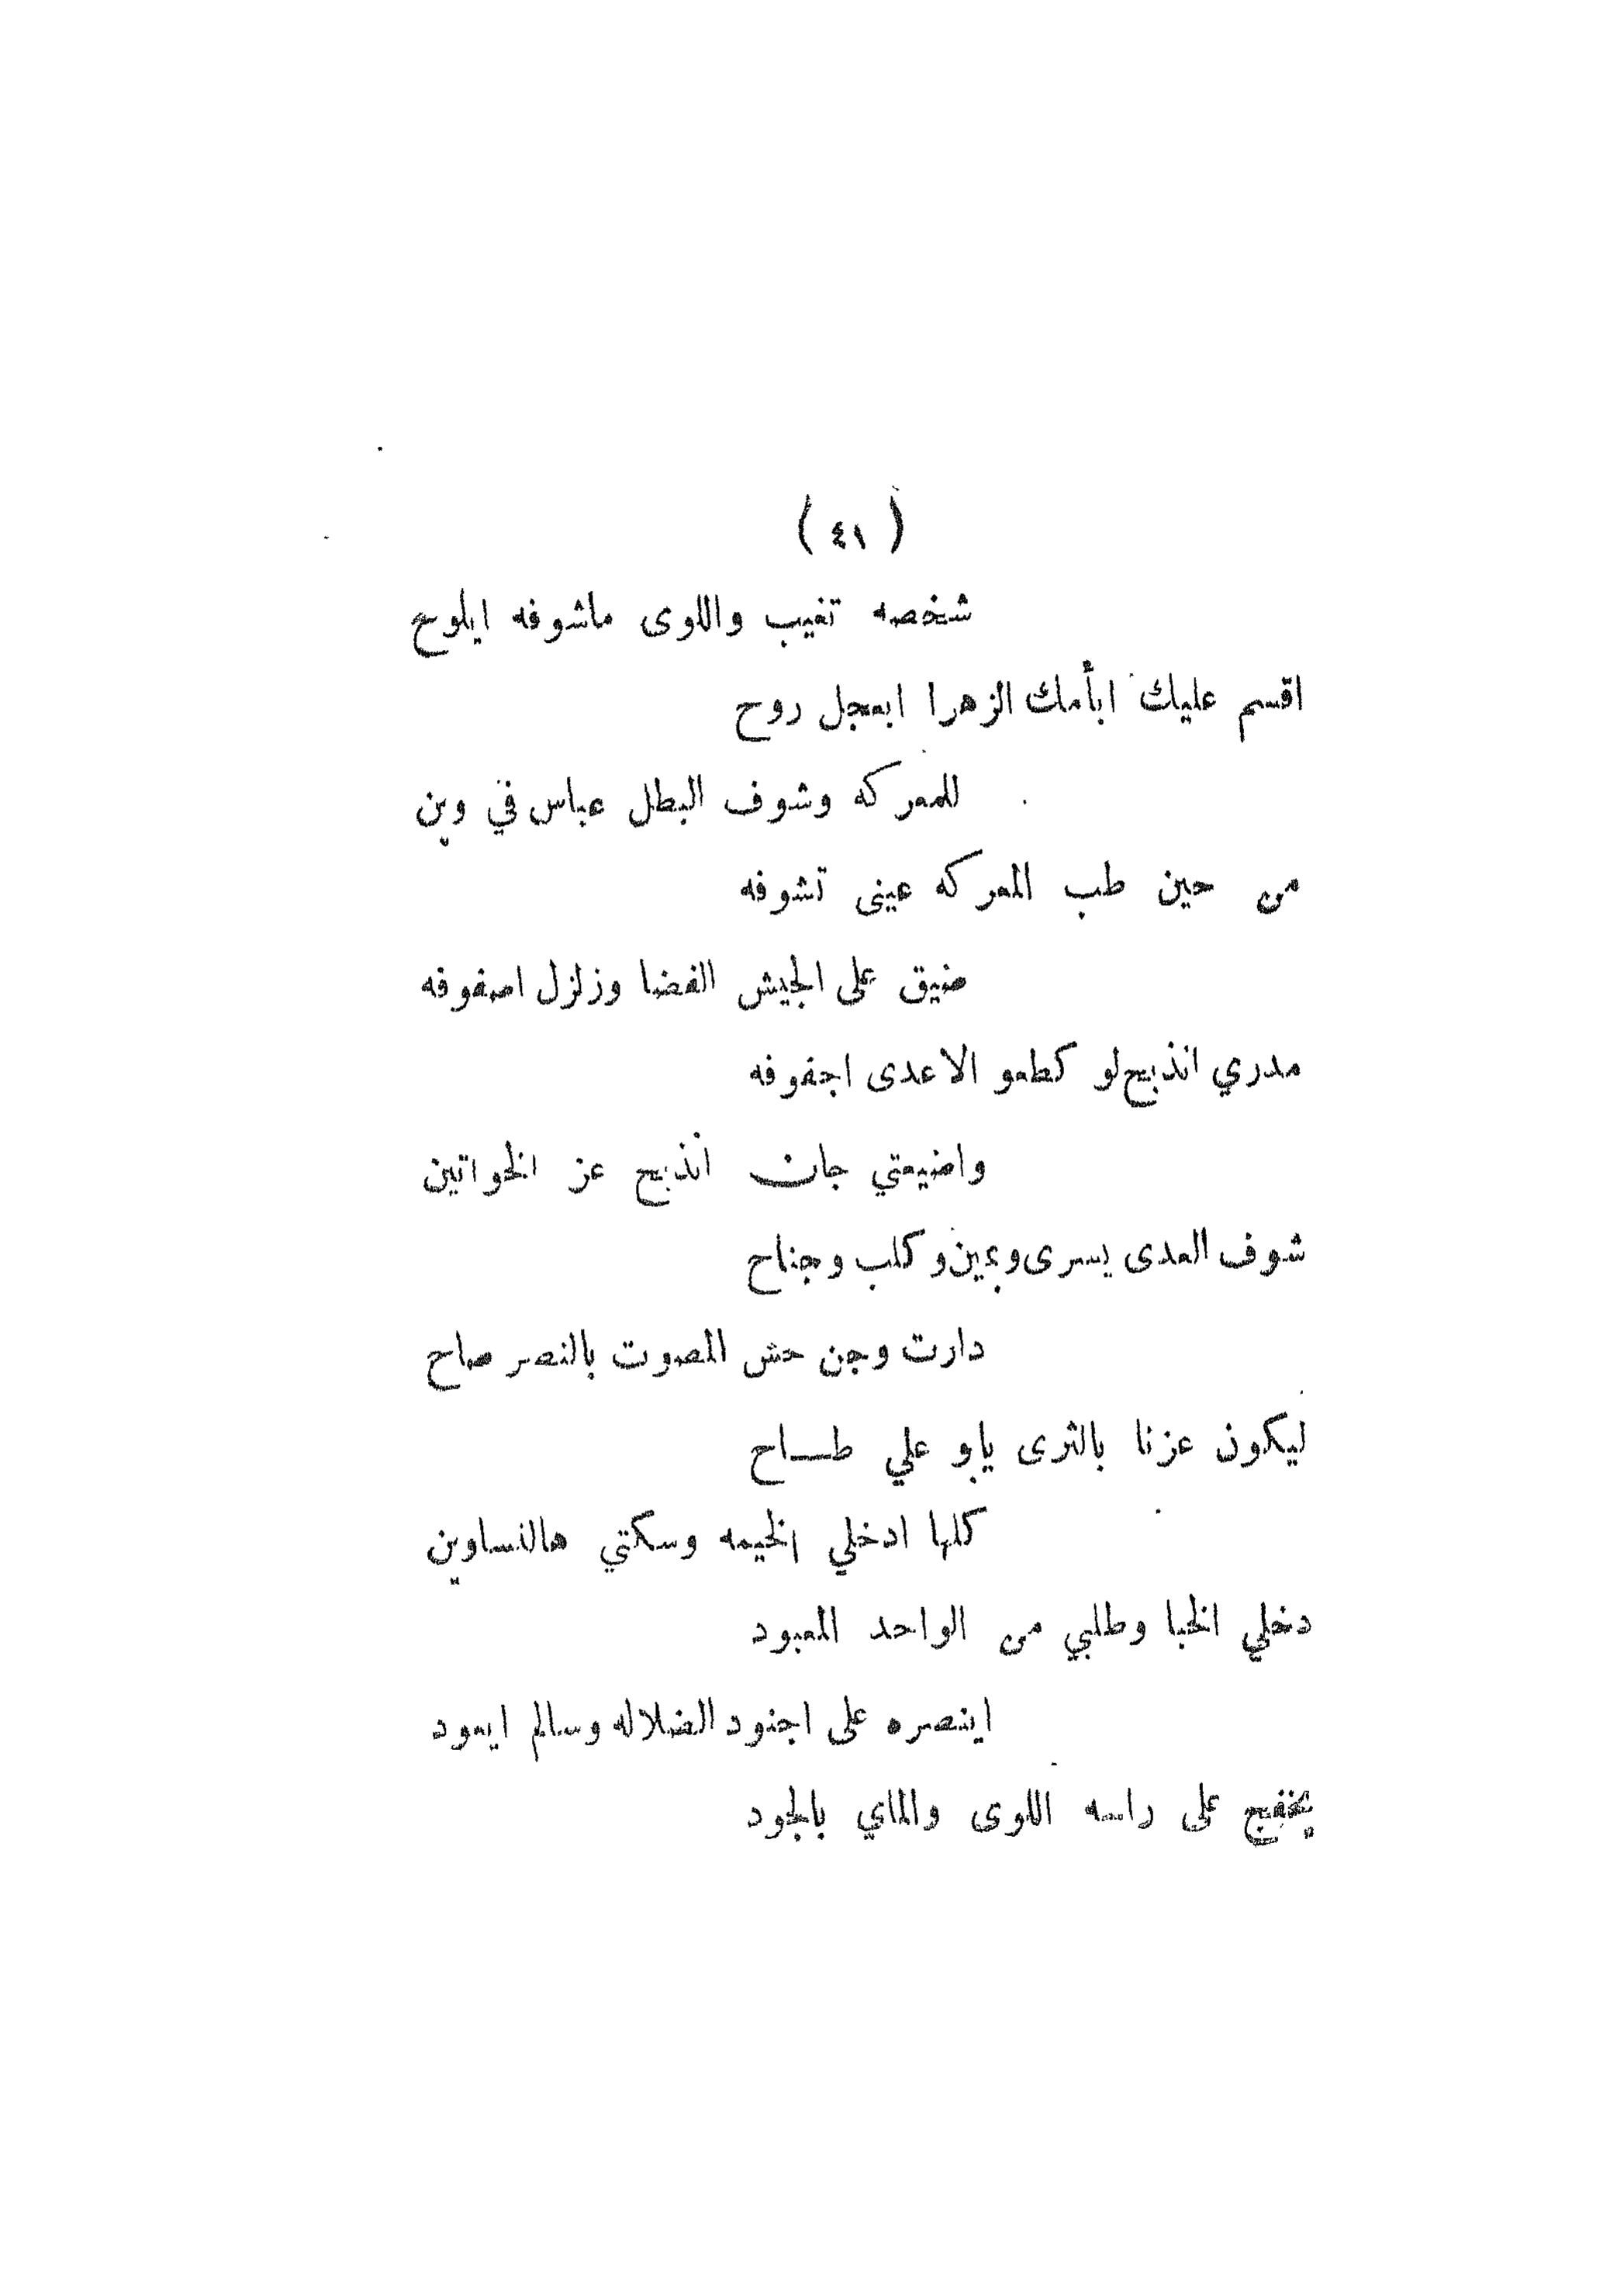 ( ٤١ )
شخصه تغيب واللوى ماشوفه ايلوح
اقسم عليك ابأمك الزهرا ابعجل روح
للمعركه وشوف البطل عباس في وين
من حين طب المعركه عيني تشوفه
ضيق على الجيش الفضا وزلزل اصفوفه
مدري انذبح لو كطعو الاعدى اجفوفه
واضيعتي جان انذبح عز الخواتين
شوف العدى يسرى ويمين وكلب وجناح
دارت وجن حش الصوت بالنصر صاح
ليكون عزنا بالثرى يابو علي طــاح
كلها ادخلي الخيمه وسكتي هالنساوين
دخلي الخبا وطلبي من الواحد المعبود
اينصره على اجنود الضلاله وسالم ايعود
يخفج على راسه اللوى والماي بالجود